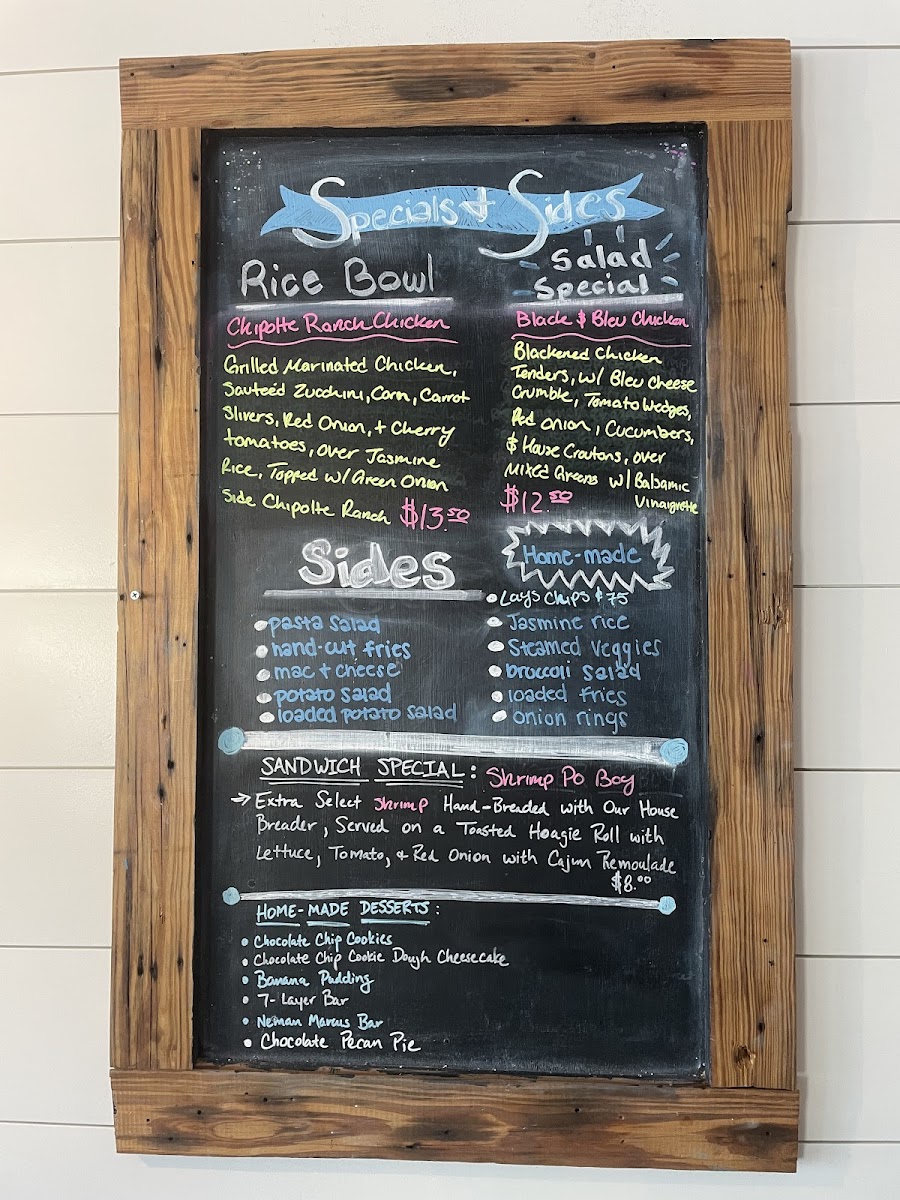 Specials & Sides
Rice Bowl
Chipolte Ranch Chicken
Grilled Marinated Chicken,
Sauteéd Zucchini, Corn, Carrot
Slivers, Red Onion, + Cherry
tomatoes, over Jasmine
Rice, Topped w/ Green Onion
Side Chipolte Ranch $13.50
Salad
Special
Black $ Bleu Chicken
Blackened Chicken
Tenders, w/ Bleu Cheese
Crumble, Tomato Wedges,
Red onion, Cucumbers,
$ House Croutons, over
Mixed Greens w/ Balsamic
Vinaigrette
$12.50
Sides
pasta salad
hand-cut fries
mac + cheese
potato salad
loaded potato salad
Home-made
Lays Chips $.75
Jasmine rice
Steamed veggies
broccoli salad
loaded fries
onion rings
SANDWICH SPECIAL: Shrimp Po Boy
→ Extra Select Shrimp Hand-Breaded with Our House
Breader, Served on a Toasted Hoagie Roll with
Lettuce, Tomato, & Red Onion with Cajun Remoulade
$8.00
HOME-MADE DESSERTS:
• Chocolate Chip Cookies
• Chocolate Chip Cookie Dough Cheesecake
• Banana Pudding
• 7-Layer Bar
• Neman Marcus Bar
• Chocolate Pecan Pie